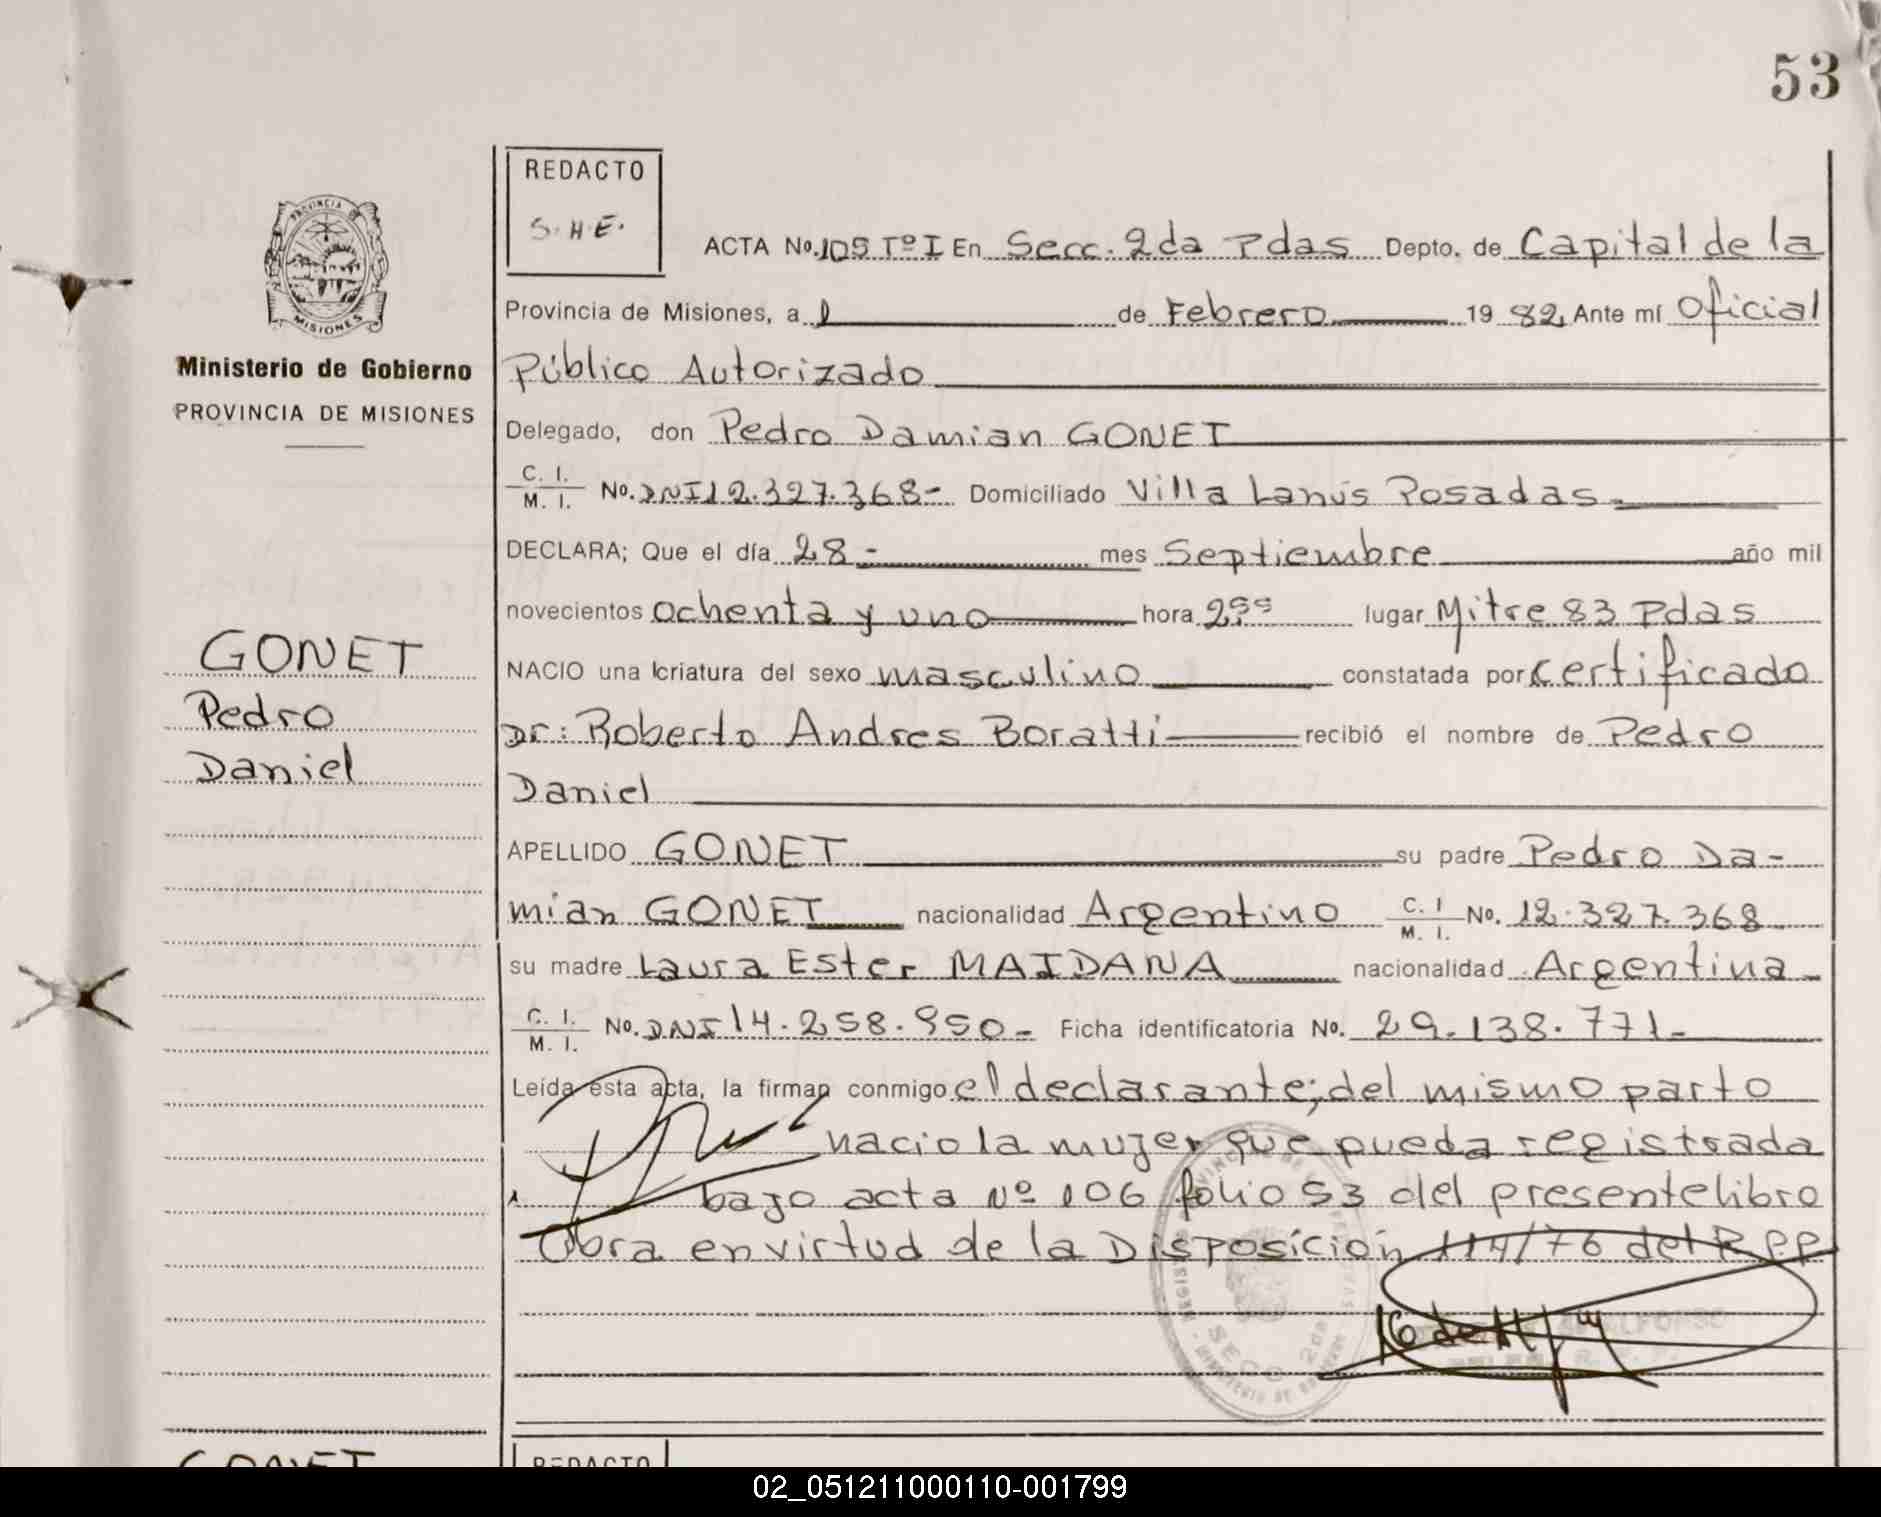 53
REDACTO
S.H.E.
PROVINCIA DE
MISIONES
Ministerio de Gobierno
PROVINCIA DE MISIONES
GONET
Pedro
Daniel
ACTA No. 105 Tº I En Secc. 2da Pdas Depto. de Capital de la
Provincia de Misiones, a 1 de Febrero 19 82 Ante mí Oficial
Público Autorizado
Delegado, don Pedro Damian GONET
C. I. M. I. No. DNI 12.327.368- Domiciliado Villa Lanús Posadas.
DECLARA; Que el día 28- mes Septiembre año mil
novecientos ochenta y uno hora 2 lugar Mitre 83 Pdas
NACIO una criatura del sexo masculino constatada por certificado
Dr: Roberto Andres Boratti recibió el nombre de Pedro
Daniel
APELLIDO GONET su padre Pedro Da-
mian GONET nacionalidad Argentino C. I M. I. No. 12.327.368
su madre Laura Ester MAIDANA nacionalidad Argentina
C. I. M. I. No. DNI 14.258.950- Ficha identificatoria No. 29.138.771-
Leída esta acta, la firman conmigo el declarante; del mismo parto
nacio la mujer que pueda registrada
bajo acta Nº 106 folio 53 del presente libro
Obra en virtud de la Disposición 114/76 del R.P.P
SECC 2da
GONET
REDACTO
02_051211000110-001799